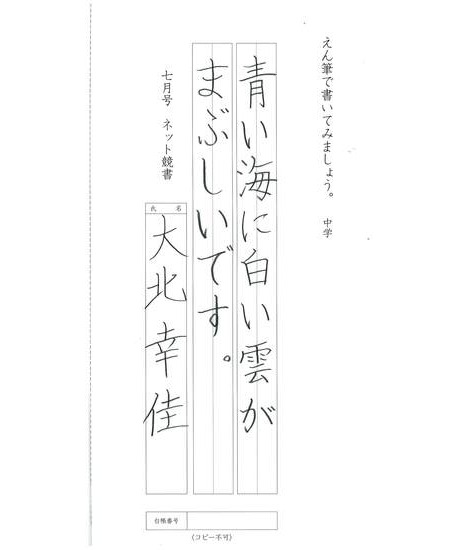 えん筆で書いてみましょう。 中学
青い海に白い雲が
まぶしいです。
七月号 ネット競書
氏 名
大北幸佳
台帳番号
(コピー不可)